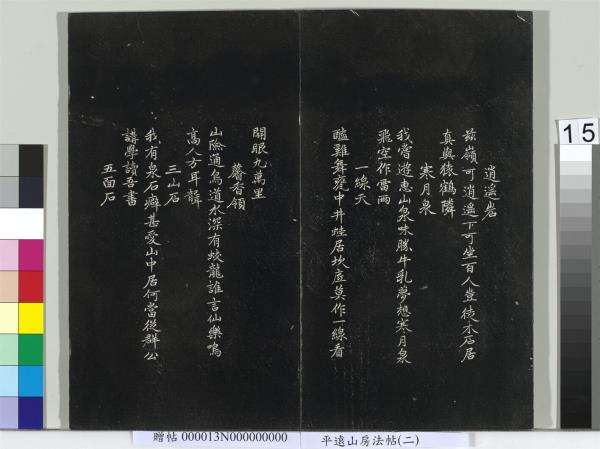 逍遙岩
茲嶺可逍遙下可坐百人豈徒木石居
真與猿鶴隣
寒月泉
我嘗遊惠山泉味勝牛乳夢想寒月泉
飛空作當雨
一線天
醯雞舞甕中井蛙居坎底莫作一線看
開眼九萬里
馨香嶺
山險通鳥道水深有蛟龍誰言仙樂鳴
高人方耳聾
三山石
我有泉石癖甚愛山中居何當從群公
講學讀吾書
五面石
15
贈帖 000013N000000000
平遠山房法帖(二)